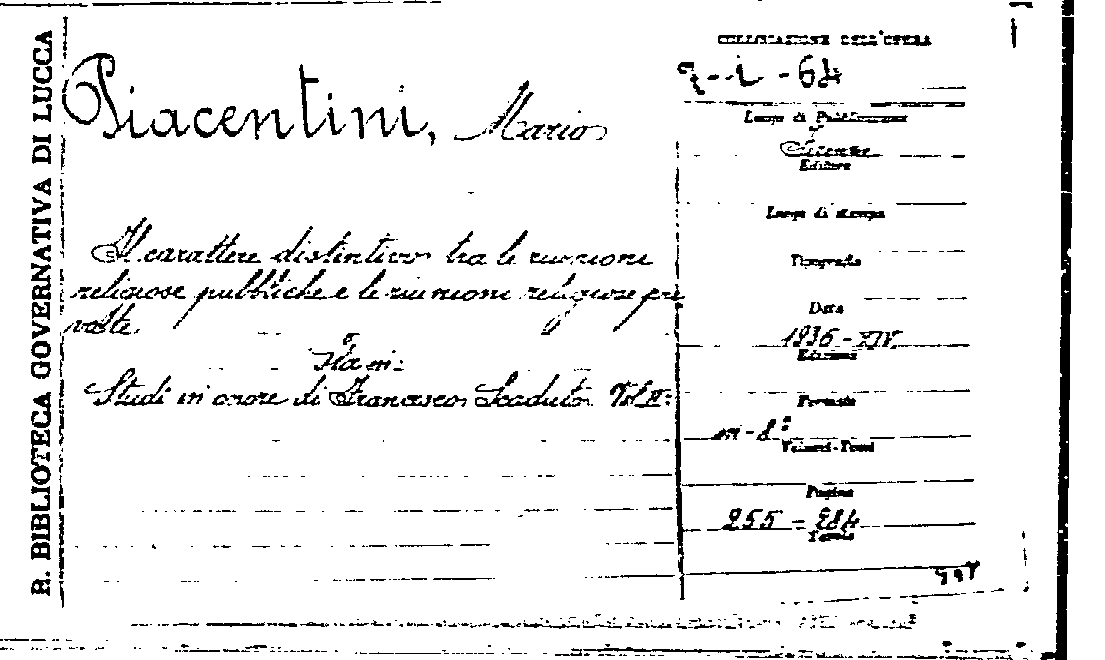 R. BIBLIOTECA GOVERNATIVA DI LUCCA
Piacentini, Mario
Il carattere distintivo tra le riunione
religiose pubbliche e le riunione religiose pri
vatte.
Sta in:
Studi in onore di Francesco Scaduto Vol. II:
COLLOCAZIONE DELL'OPERA
-64
Luogo di Pubblicazione
Firenze
Editore
Luogo di stampa
Tipografia
Data
1936-XIV
Edizione
Formato
in-8°
Volumi-Tomi
Pagine
255-284
Tavole